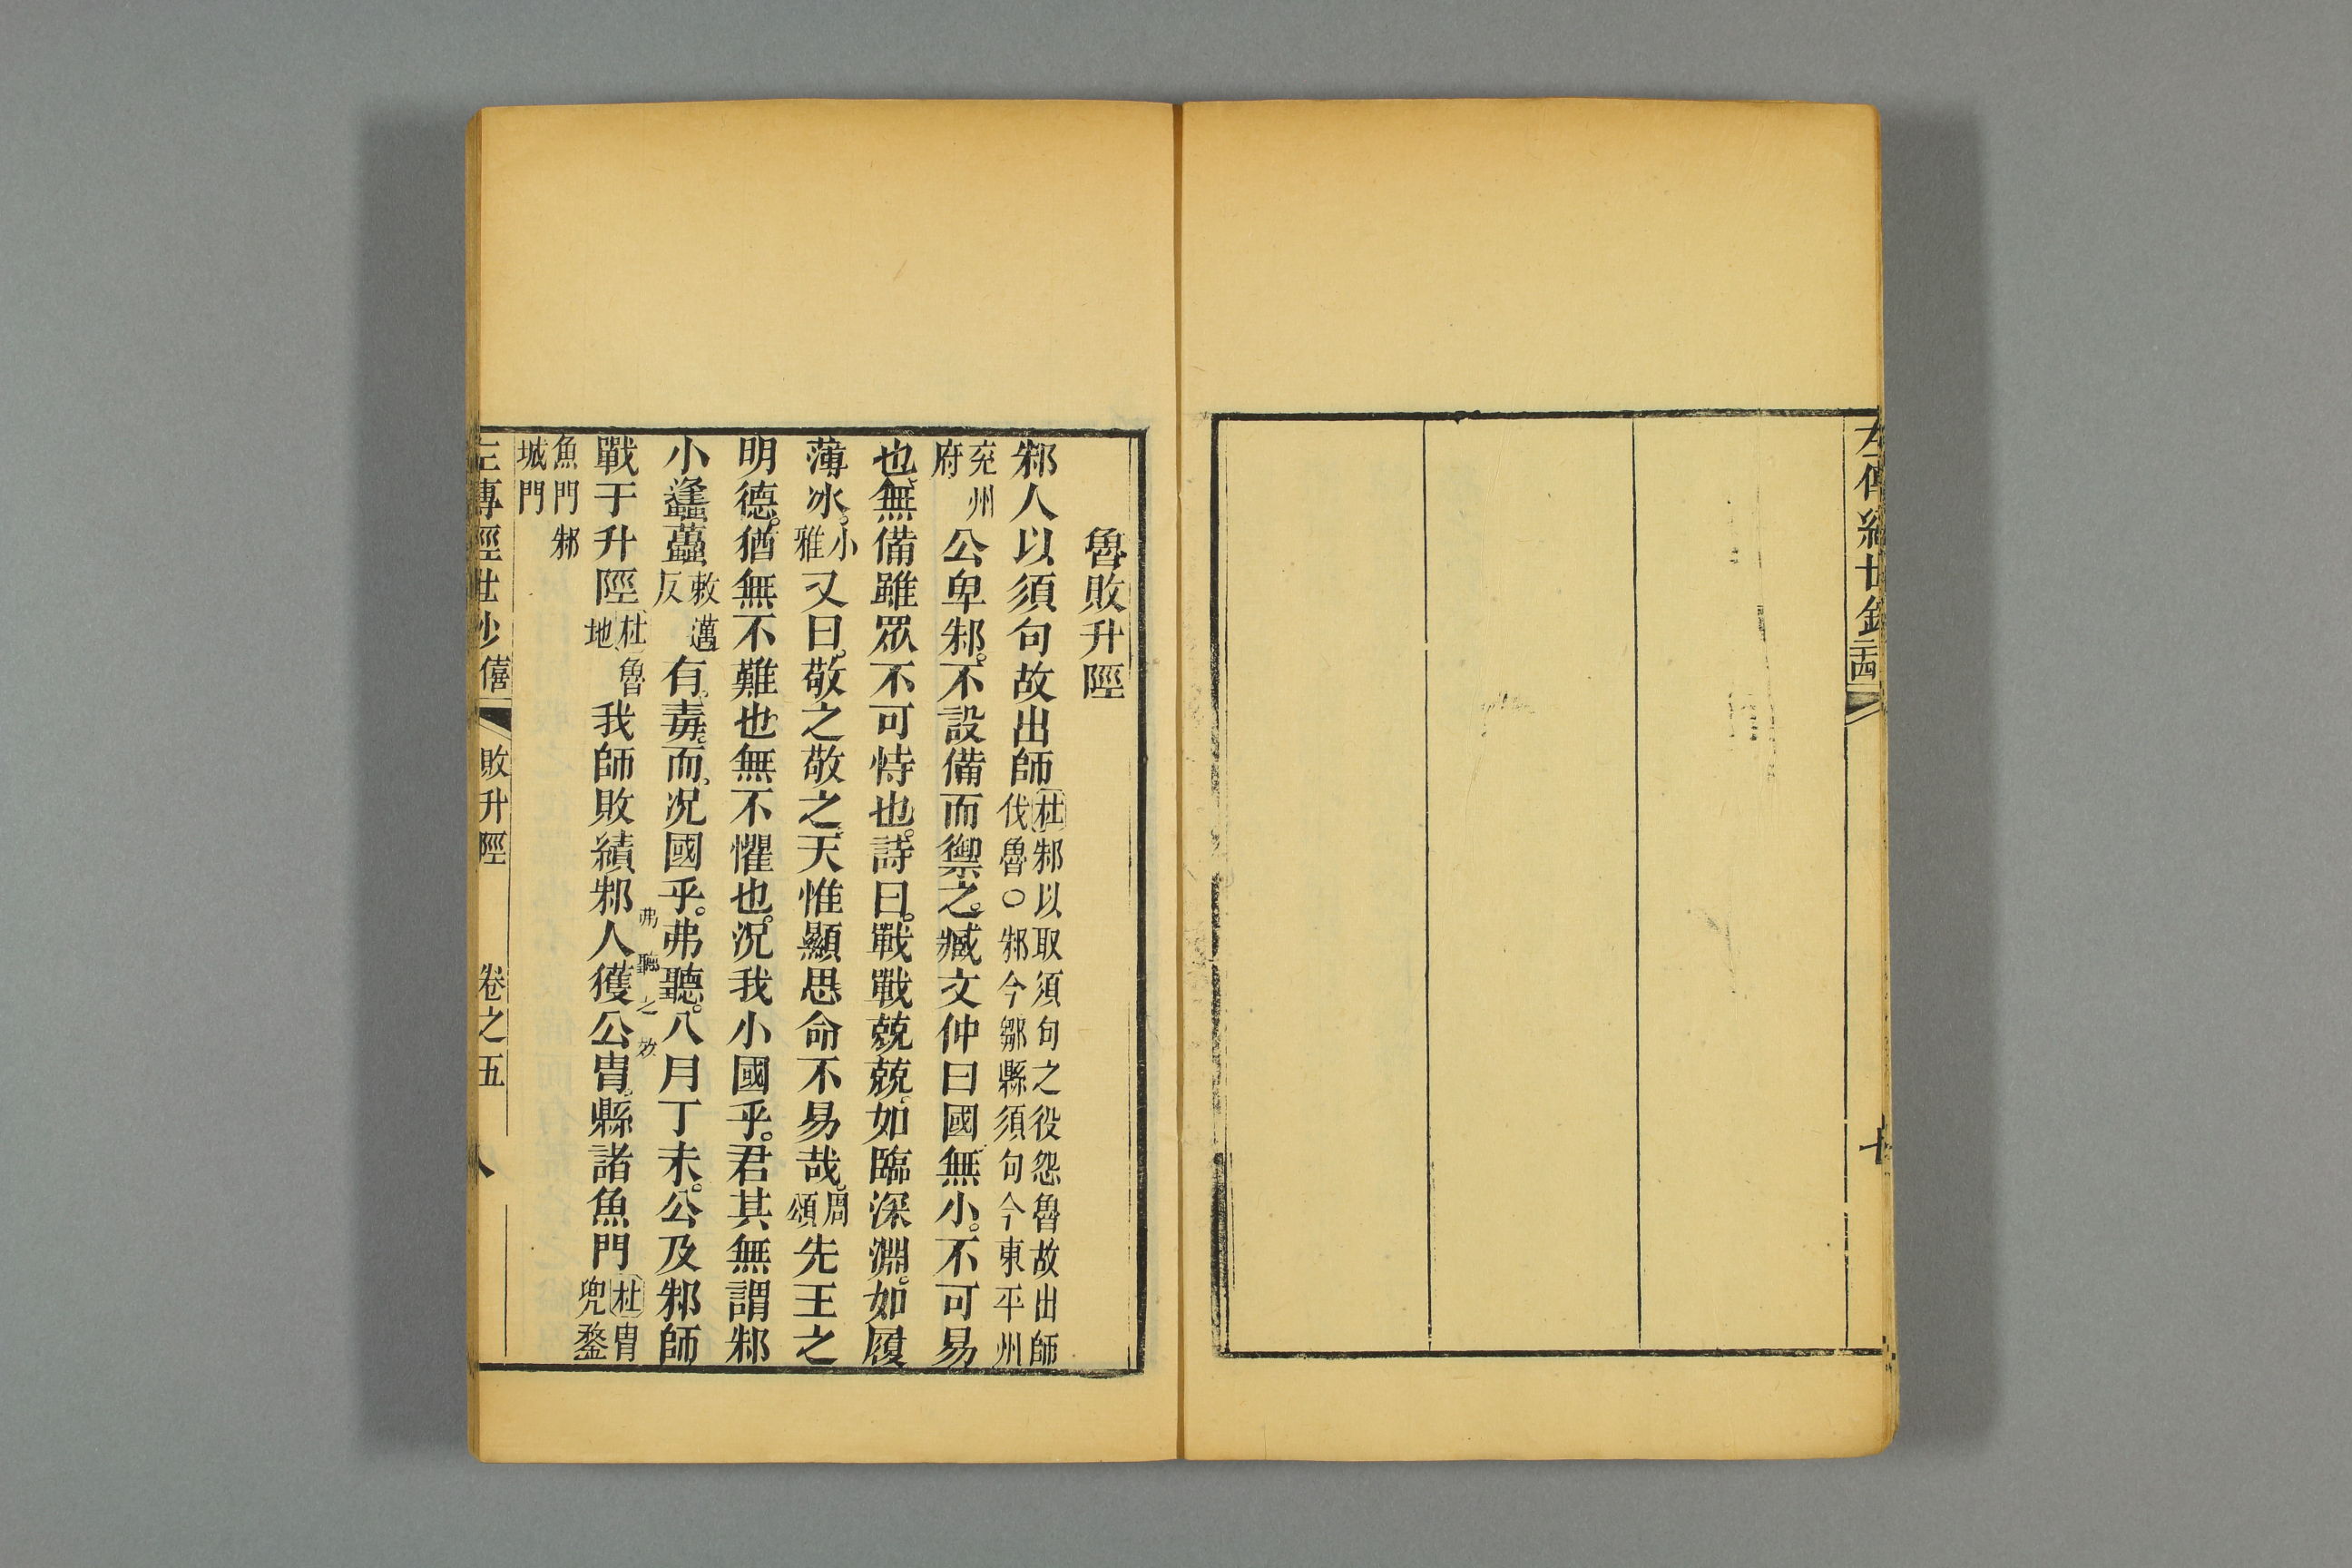 魯敗升陘
邾人以須句故出師杜邾以取須句之役怨魯故出師伐魯○邾今鄒縣須句今東平州
兖州府公卑邾。不設備而禦之。臧文仲曰國無小。不可易
也無備雖眾不可恃也。詩曰。戰戰兢兢。如臨深淵。如履
薄冰。小雅又曰。敬之敬之天惟顯思命不易哉。周頌先王之
明德。猶無不難也無不懼也。況我小國乎。君其無謂邾
小蠭蠆敕邁反有毒。而況國乎。弗聽。八月丁未。公及邾師
弗聽之效
戰于升陘杜魯地我師敗績邾人獲公冑。縣諸魚門杜冑兜鍪
魚門邾城門
左傳經世鈔 僖 敗升陘 卷之五 八
左傳經世鈔